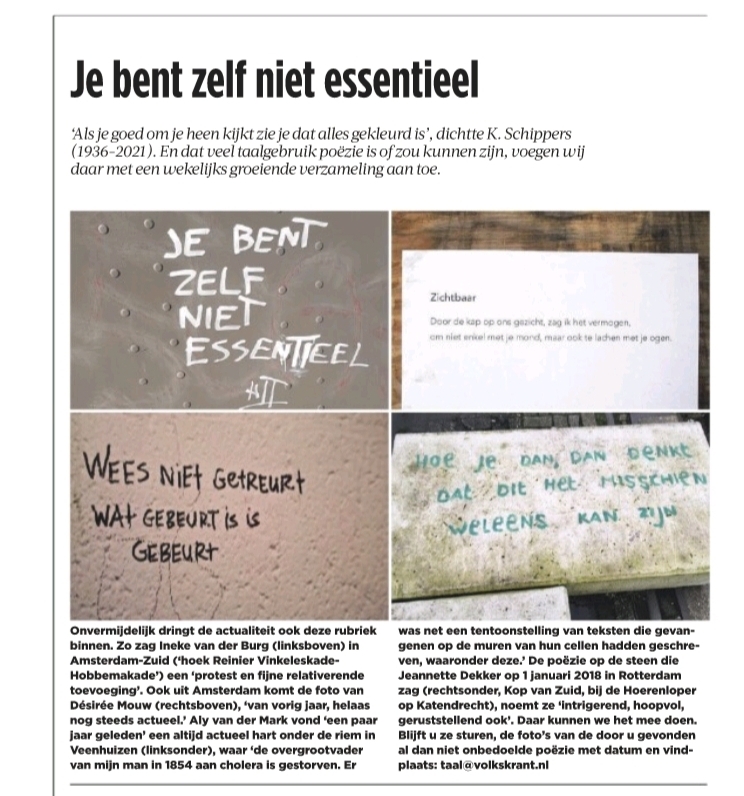 Je bent zelf niet essentieel
'Als je goed om je heen kijkt zie je dat alles gekleurd is', dichtte K. Schippers
(1936-2021). En dat veel taalgebruik poëzie is of zou kunnen zijn, voegen wij
daar met een wekelijks groeiende verzameling aan toe.
JE BENT
ZELF
NIET
ESSENTIEEL
Zichtbaar
Door de kap op ons gezicht, zag ik het vermogen,
om niet enkel met je mond, maar ook te lachen met je ogen.
WEES NIET GETREURT
WAT GEBEURT is is
GEBEURT
HOE Je DAN, DAN DENKT
DAT DIT HET MISSCHIEN
WELEENS KAN ZIJN
Onvermijdelijk dringt de actualiteit ook deze rubriek
binnen. Zo zag Ineke van der Burg (linksboven) in
Amsterdam-Zuid ('hoek Reinier Vinkeleskade-
Hobbemakade') een 'protest en fijne relativerende
toevoeging'. Ook uit Amsterdam komt de foto van
Désirée Mouw (rechtsboven), 'van vorig jaar, helaas
nog steeds actueel.' Aly van der Mark vond 'een paar
jaar geleden' een altijd actueel hart onder de riem in
Veenhuizen (linksonder), waar 'de overgrootvader
van mijn man in 1854 aan cholera is gestorven. Er
was net een tentoonstelling van teksten die gevan-
genen op de muren van hun cellen hadden geschre-
ven, waaronder deze.' De poëzie op de steen die
Jeannette Dekker op 1 januari 2018 in Rotterdam
zag (rechtsonder, Kop van Zuid, bij de Hoerenloper
op Katendrecht), noemt ze 'intrigerend, hoopvol,
geruststellend ook'. Daar kunnen we het mee doen.
Blijft u ze sturen, de foto's van de door u gevonden
al dan niet onbedoelde poëzie met datum en vind-
plaats: taal@volkskrant.nl